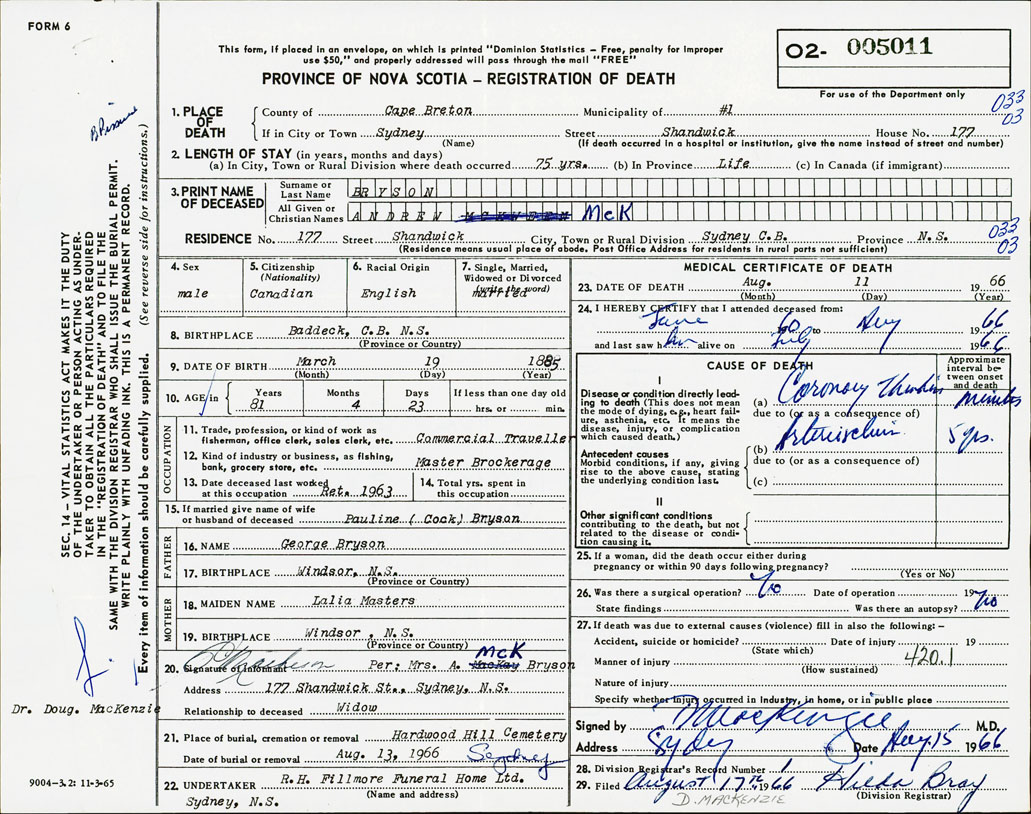 FORM 6
This form, if placed in an envelope, on which is printed "Dominion Statistics – Free, penalty for improper
use $50," and properly addressed will pass through the mail "FREE"
PROVINCE OF NOVA SCOTIA – REGISTRATION OF DEATH
02- 005011
For use of the Department only
033
03
1. PLACE OF DEATH
County of Cape Breton Municipality of #1
If in City or Town Sydney Street Shandwick House No. 177
(Name) (If death occurred in a hospital or institution, give the name instead of street and number)
2. LENGTH OF STAY (in years, months and days)
(a) In City, Town or Rural Division where death occurred 75 yrs. (b) In Province Life (c) In Canada (if immigrant)
3. PRINT NAME OF DECEASED
Surname or Last Name BRYSON
All Given or Christian Names ANDREW McK
RESIDENCE No. 177 Street Shandwick City, Town or Rural Division Sydney C.B. Province N.S.
(Residence means usual place of abode. Post Office Address for residents in rural parts not sufficient)
033
03
4. Sex
male
5. Citizenship
(Nationality)
Canadian
6. Racial Origin
English
7. Single, Married,
Widowed or Divorced
(write the word)
married
8. BIRTHPLACE Baddeck, C.B. N.S.
(Province or Country)
9. DATE OF BIRTH March 19 1885
(Month) (Day) (Year)
10. AGE in
Years Months Days If less than one day old
81 4 23 hrs. or min.
OCCUPATION
11. Trade, profession, or kind of work as
fisherman, office clerk, sales clerk, etc. Commercial Traveller
12. Kind of industry or business, as fishing,
bank, grocery store, etc. Master Brockerage
13. Date deceased last worked
at this occupation Ret. 1963
14. Total yrs. spent in
this occupation
15. If married give name of wife
or husband of deceased Pauline ( Cock) Bryson
FATHER
16. NAME George Bryson
17. BIRTHPLACE Windsor, N.S.
(Province or Country)
MOTHER
18. MAIDEN NAME Lalia Masters
19. BIRTHPLACE Windsor , N.S.
(Province or Country)
McK
20. Signature of informant Per: Mrs. A. MacKay Bryson
Address 177 Shandwick St., Sydney, N.S.
Relationship to deceased Widow
21. Place of burial, cremation or removal Hardwood Hill Cemetery
Date of burial or removal Aug. 13, 1966 Sydney
22. UNDERTAKER R.H. Fillmore Funeral Home Ltd.
(Name and address)
Sydney, N.S.
MEDICAL CERTIFICATE OF DEATH
23. DATE OF DEATH Aug. 11 1966
(Month) (Day) (Year)
24. I HEREBY CERTIFY that I attended deceased from:
June 60 to Aug 1966
and last saw him alive on July 1966
CAUSE OF DEATH
Approximate interval between onset and death
I
Disease or condition directly leading to death (This does not mean the mode of dying, e.g., heart failure, asthenia, etc. It means the disease, injury, or complication which caused death.)
(a) Coronary minutes
due to (or as a consequence of)
Antecedent causes
Morbid conditions, if any, giving rise to the above cause, stating the underlying condition last.
(b) 5 yrs.
due to (or as a consequence of)
(c)
II
Other significant conditions
contributing to the death, but not related to the disease or condition causing it.
25. If a woman, did the death occur either during
pregnancy or within 90 days following pregnancy?
(Yes or No)
26. Was there a surgical operation? No Date of operation 19
State findings Was there an autopsy? No
27. If death was due to external causes (violence) fill in also the following: –
Accident, suicide or homicide? Date of injury 19
(State which)
Manner of injury 420.1
(How sustained)
Nature of injury
Specify whether injury occurred in industry, in home, or in public place
Signed by D MacKenzie M.D.
Address Sydney Date Aug. 15 1966
28. Division Registrar's Record Number
29. Filed August 17th 1966 Hilda Bray
(Division Registrar)
D. MACKENZIE
SEC. 14 – VITAL STATISTICS ACT MAKES IT THE DUTY
OF THE UNDERTAKER OR PERSON ACTING AS UNDER-
TAKER TO OBTAIN ALL THE PARTICULARS REQUIRED
IN THE "REGISTRATION OF DEATH" AND TO FILE THE
SAME WITH THE DIVISION REGISTRAR WHO SHALL ISSUE THE BURIAL PERMIT.
WRITE PLAINLY WITH UNFADING INK. THIS IS A PERMANENT RECORD.
Every item of information should be carefully supplied. (See reverse side for instructions.)
Dr. Doug. MacKenzie
9004–3.2: 11-3-65